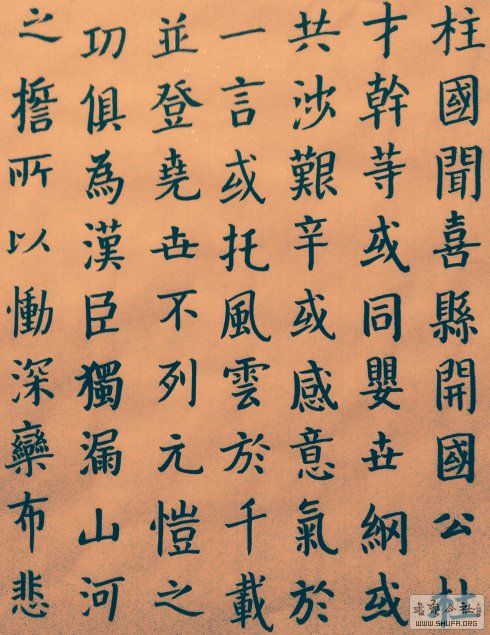 柱國聞喜縣開國公
才幹等或同嬰世網或
共涉艱辛或感意氣於
一言或托風雲於千載
並登堯世不列元愷之
功俱為漢臣獨漏山河
之擔所以慟深欒布悲
WWW.SHUFA.ORG